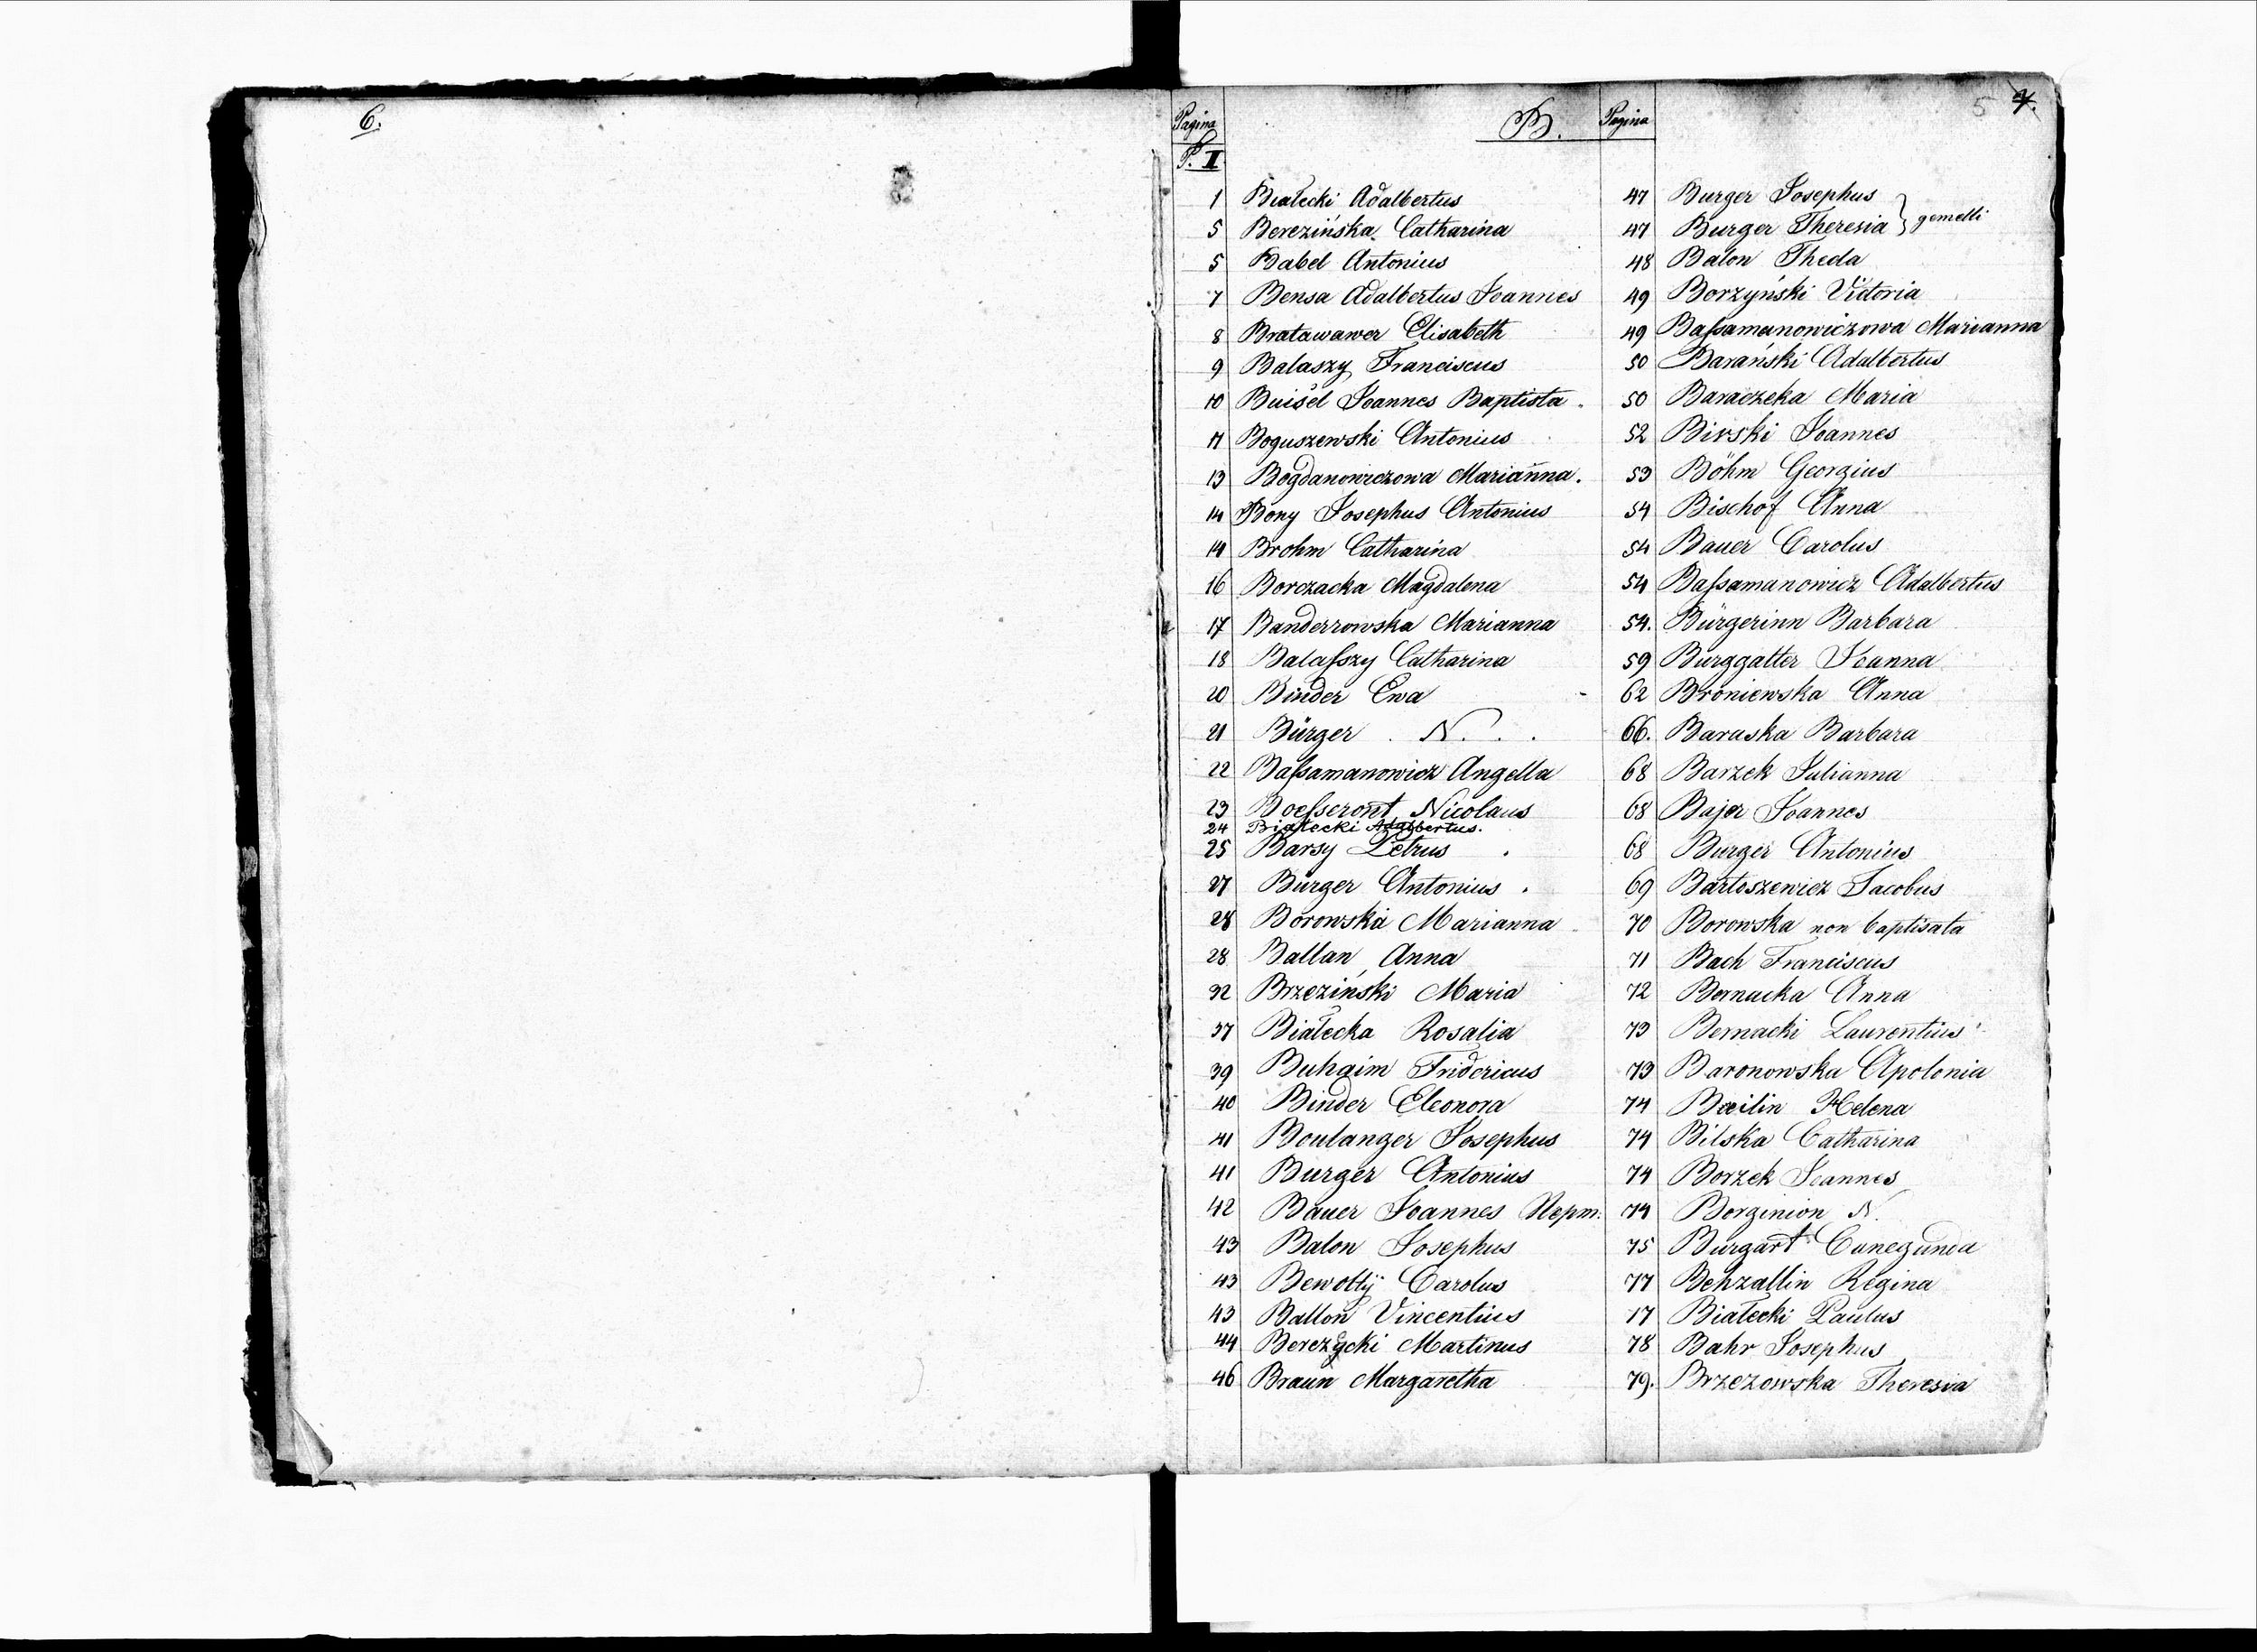 6.
5 7.
Pagina B. Pagina
P. II
1 Białecki Adalbertus
5 Berezińska Catharina
5 Babel Antonius
7 Bensa Adalbertus Joannes
8 Bratawawer Elisabeth
9 Balaszy Franciscus
10 Buisel Joannes Baptista
11 Boguszewski Antonius
13 Bogdanowiczowa Marianna.
14 Bony Josephus Antonius
14 Brohm Catharina
16 Borczacka Magdalena
17 Banderrowska Marianna
18 Balaſszy Catharina
20 Binder Ewa
21 Bürger N. . .
22 Baſsamanowicz Angella
23 Boeſseront Nicolaus
24 Białecki Adalbertus.
25 Barsy Petrus
27 Bürger Antonius
28 Borowska Marianna
28 Ballan Anna
32 Brzeziński Maria
37 Białecka Rosalia
39 Buhaim Fridericus
40 Binder Eleonora
41 Boulanger Josephus
41 Burger Antonius
42 Bauer Joannes Nepm:
43 Balon Josephus
43 Bewottÿ Carolus
43 Ballon Vincentius
44 Berezycki Martinus
46 Braun Margaretha
47 Burger Josephus
47 Burger Theresia } gemelli
48 Balon Theda
49 Borzyński Victoria
49 Baſsamanowiczowa Marianna
50 Barański Adalbertus
50 Baraczeka Maria
52 Birski Joannes
53 Böhm Georgius
54 Bischof Anna
54 Bauer Carolus
54 Baſsamanowicz Adalbertus
54. Bürgerinn Barbara
59 Burggatter Joanna
62 Broniewska Anna
66. Baraska Barbara
68 Barzek Julianna
68 Bajer Joannes
68 Burger Antonius
69 Bartoszewicz Jacobus
70 Borowska non baptisata
71 Bach Franciscus
72 Bernacka Anna
73 Bernacki Laurentius
73 Baronowska Apolonia
74 Bæilin Helena
74 Bilska Catharina
74 Borzek Joannes
74 Borginion N.
75 Burgart Cunegunda
77 Behzallin Regina
77 Białecki Paulus
78 Bahr Josephus
79. Brzezowska Theresia